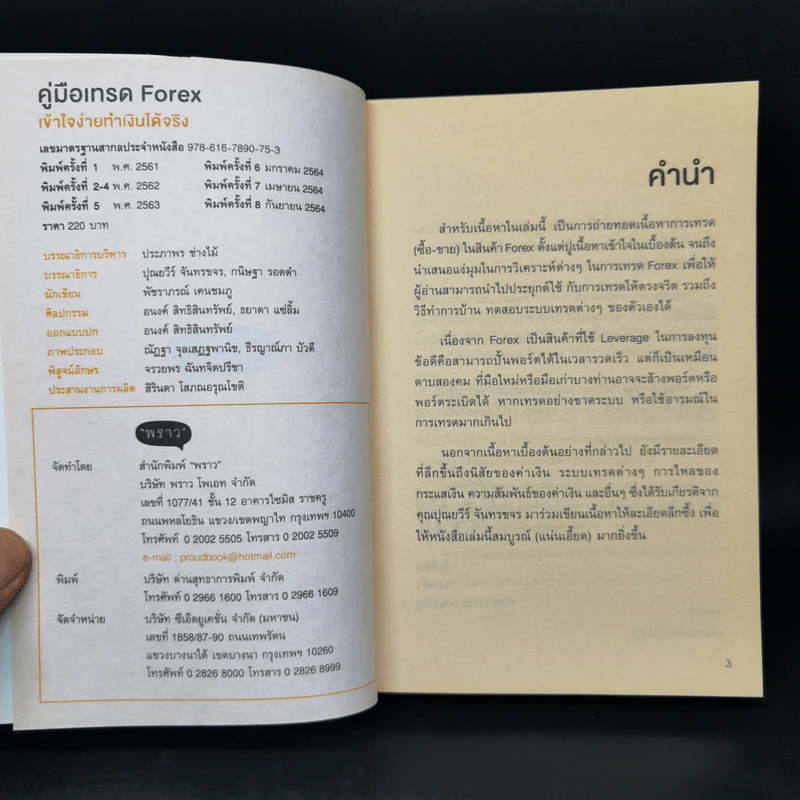 คู่มือเทรด Forex
เข้าใจง่ายทำเงินได้จริง
เลขมาตรฐานสากลประจำหนังสือ 978-616-7890-75-3
พิมพ์ครั้งที่ 1 พ.ศ. 2561 พิมพ์ครั้งที่ 6 มกราคม 2564
พิมพ์ครั้งที่ 2-4 พ.ศ. 2562 พิมพ์ครั้งที่ 7 เมษายน 2564
พิมพ์ครั้งที่ 5 พ.ศ. 2563 พิมพ์ครั้งที่ 8 กันยายน 2564
ราคา 220 บาท
บรรณาธิการบริหาร ประภาพร ช่างไม้
บรรณาธิการ ปุณยวีร์ จันทรขจร, กนิษฐา รอดดำ
นักเขียน พัชราภรณ์ เคนชมภู
ศิลปกรรม อนงค์ สิทธิสินทรัพย์, ธยาดา แซ่ลิ้ม
ออกแบบปก อนงค์ สิทธิสินทรัพย์
ภาพประกอบ ณัฏฐา จุลเสฏฐพานิช, ธีรญาณ์ภา บัวดี
พิสูจน์อักษร จรวยพร ฉันทจิตปรีชา
ประสานงานการผลิต สิรินดา โสภณอรุณโชติ
"พราว"
จัดทำโดย สำนักพิมพ์ "พราว"
บริษัท พราว โพเอท จำกัด
เลขที่ 1077/41 ชั้น 12 อาคารไซมิส ราชครู
ถนนพหลโยธิน แขวง/เขตพญาไท กรุงเทพฯ 10400
โทรศัพท์ 0 2002 5505 โทรสาร 0 2002 5509
e-mail : proudbook@hotmail.com
พิมพ์ บริษัท ด่านสุทธาการพิมพ์ จำกัด
โทรศัพท์ 0 2966 1600 โทรสาร 0 2966 1609
จัดจำหน่าย บริษัท ซีเอ็ดยูเคชั่น จำกัด (มหาชน)
เลขที่ 1858/87-90 ถนนเทพรัตน
แขวงบางนาใต้ เขตบางนา กรุงเทพฯ 10260
โทรศัพท์ 0 2826 8000 โทรสาร 0 2826 8999
คำนำ
สำหรับเนื้อหาในเล่มนี้ เป็นการถ่ายทอดเนื้อหาการเทรด
(ซื้อ-ขาย) ในสินค้า Forex ตั้งแต่ปูเนื้อหาเข้าใจในเบื้องต้น จนถึง
นำเสนอแง่มุมในการวิเคราะห์ต่างๆ ในการเทรด Forex เพื่อให้
ผู้อ่านสามารถนำไปประยุกต์ใช้ กับการเทรดให้ตรงจริต รวมถึง
วิธีทำการบ้าน ทดสอบระบบเทรดต่างๆ ของตัวเองได้
เนื่องจาก Forex เป็นสินค้าที่ใช้ Leverage ในการลงทุน
ข้อดีคือสามารถปั้นพอร์ตได้ในเวลารวดเร็ว แต่ก็เป็นเหมือน
ดาบสองคม ที่มือใหม่หรือมือเก่าบางท่านอาจจะล้างพอร์ตหรือ
พอร์ตระเบิดได้ หากเทรดอย่างขาดระบบ หรือใช้อารมณ์ใน
การเทรดมากเกินไป
นอกจากเนื้อหาเบื้องต้นอย่างที่กล่าวไป ยังมีรายละเอียด
ที่ลึกขึ้นถึงนิสัยของค่าเงิน ระบบเทรดต่างๆ การไหลของ
กระแสเงิน ความสัมพันธ์ของค่าเงิน และอื่นๆ ซึ่งได้รับเกียรติจาก
คุณปุณยวีร์ จันทรขจร มาร่วมเขียนเนื้อหาให้ละเอียดลึกซึ้ง เพื่อ
ให้หนังสือเล่มนี้สมบูรณ์ (แน่นเอี้ยด) มากยิ่งขึ้น
3